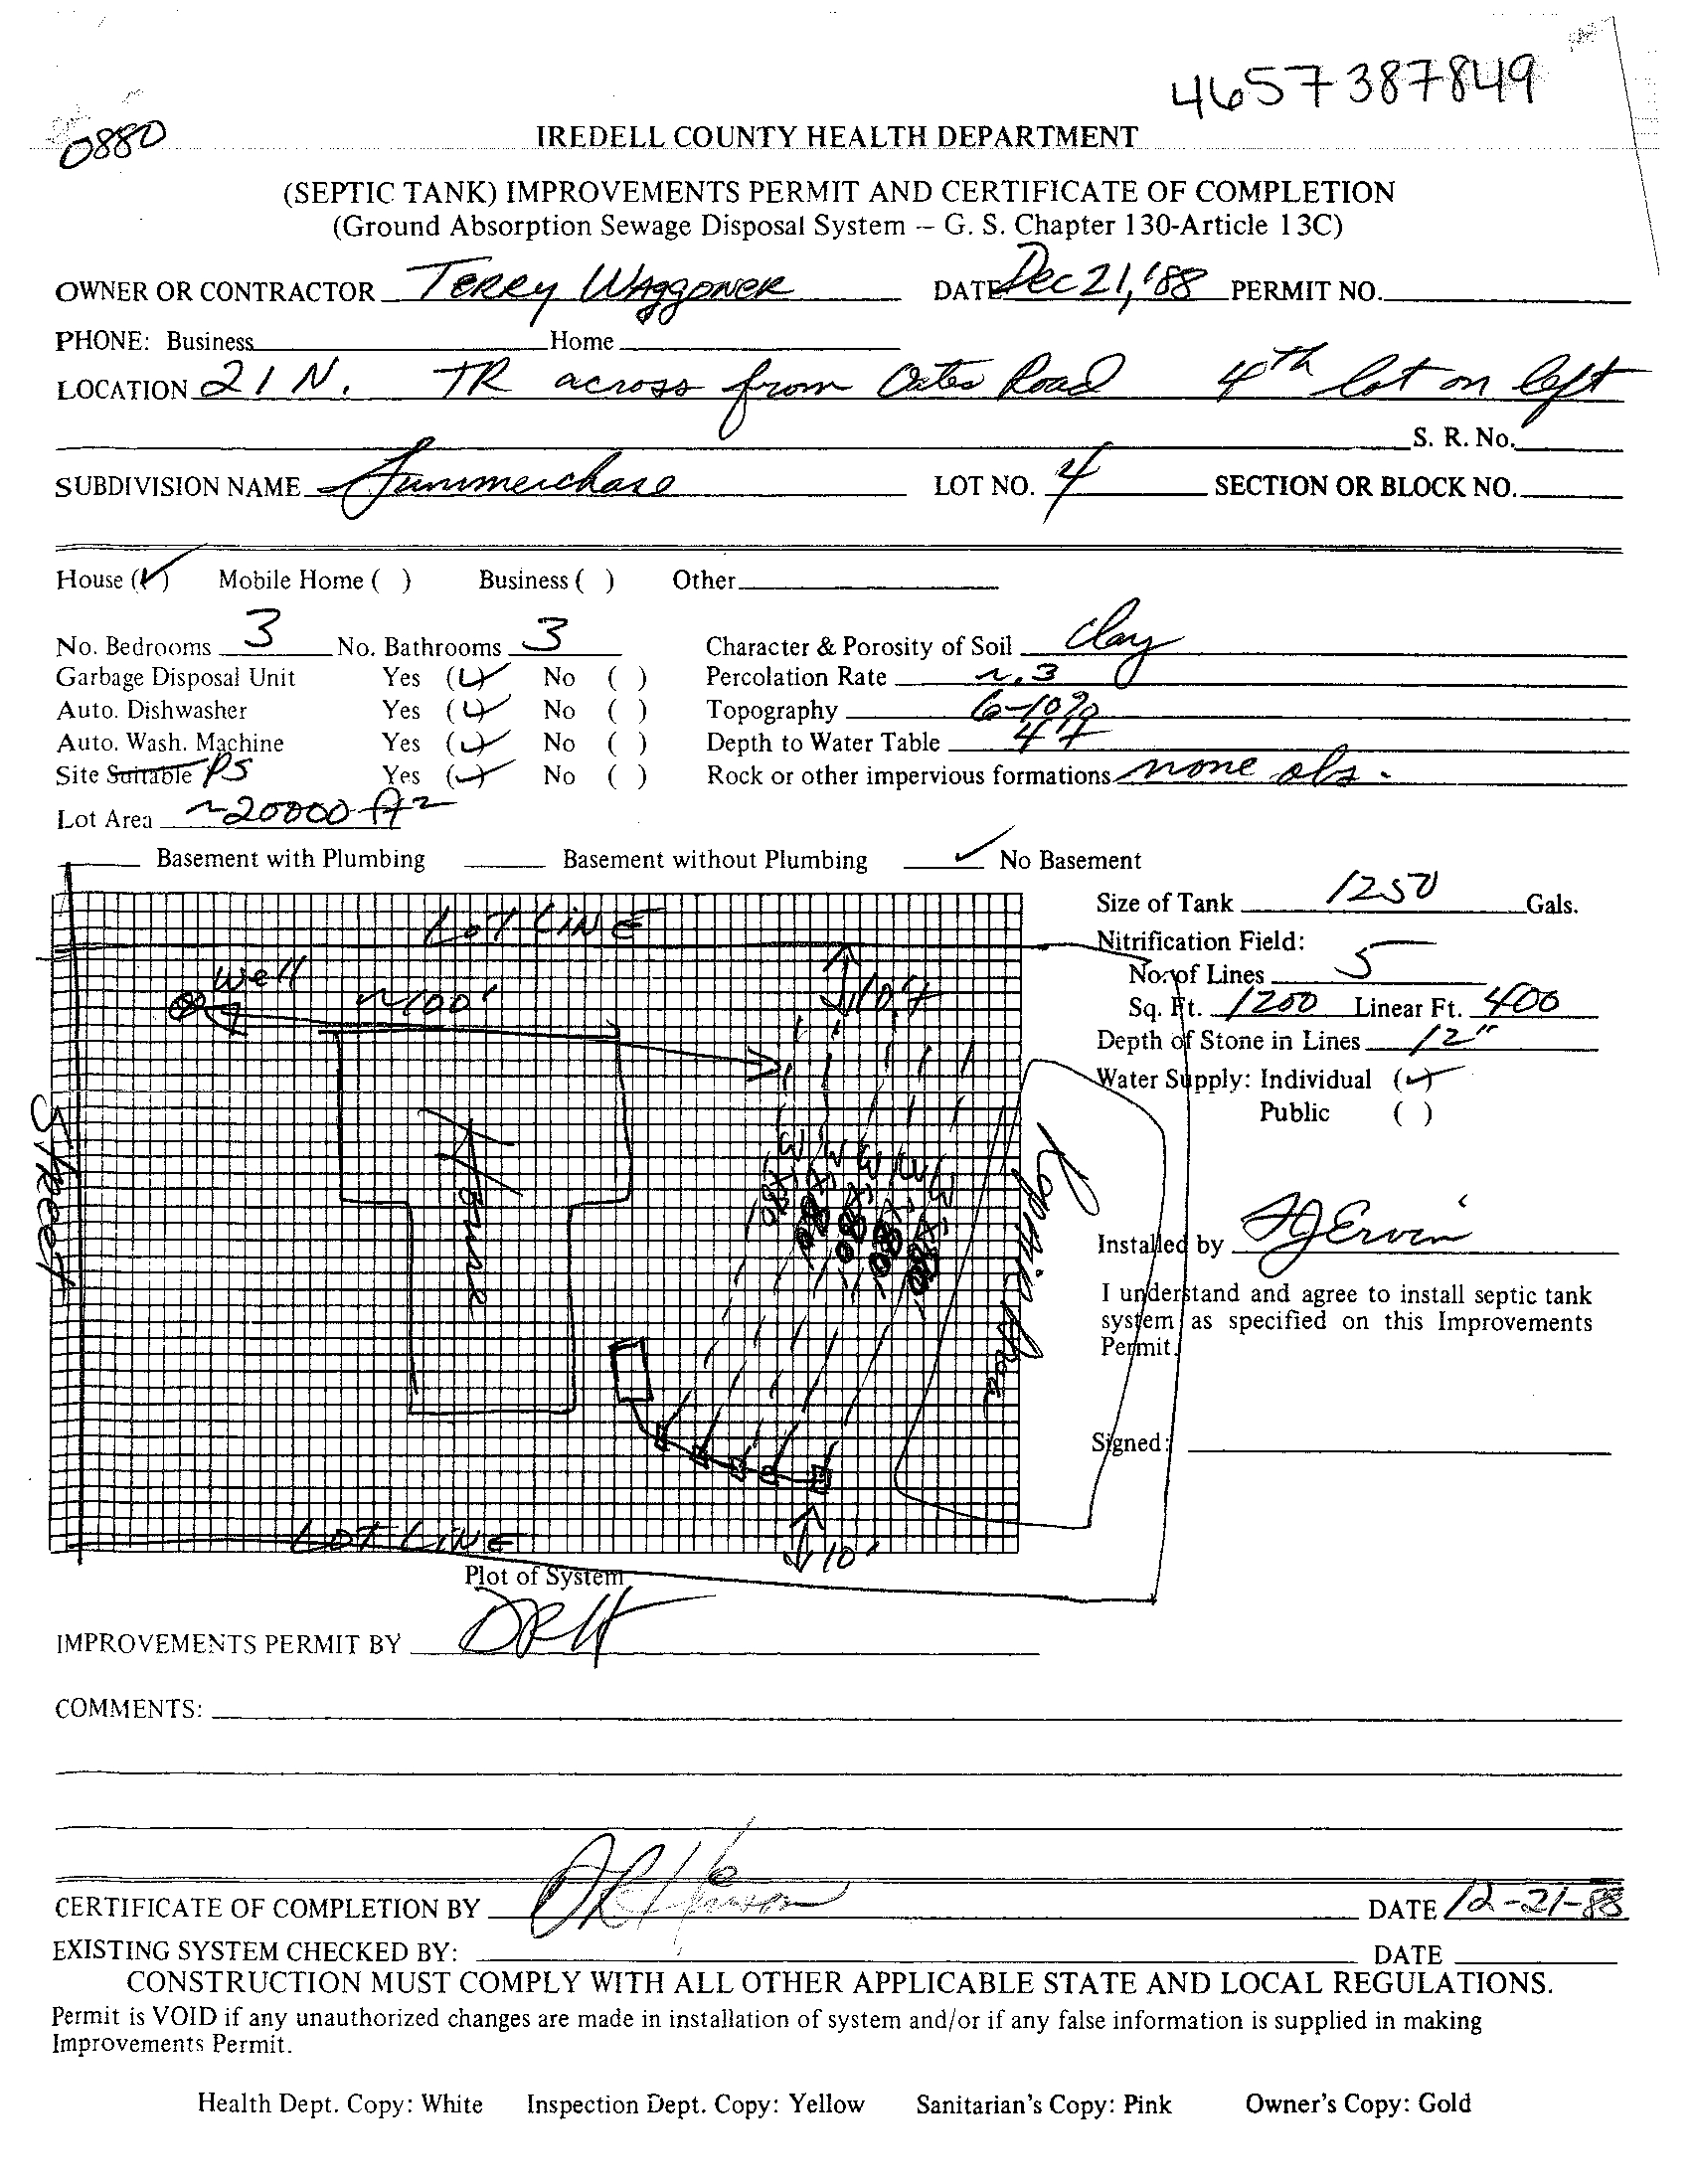 4657387849
0880
IREDELL COUNTY HEALTH DEPARTMENT
(SEPTIC TANK) IMPROVEMENTS PERMIT AND CERTIFICATE OF COMPLETION
(Ground Absorption Sewage Disposal System – G. S. Chapter 130-Article 13C)
OWNER OR CONTRACTOR Terry Waggoner DATE Dec 21, '88 PERMIT NO.
PHONE: Business Home
LOCATION 21 N. TR across from Oates Road 4th lot on left
S. R. No.
SUBDIVISION NAME Summerchase LOT NO. 4 SECTION OR BLOCK NO.
House (✓) Mobile Home ( ) Business ( ) Other
No. Bedrooms 3 No. Bathrooms 3 Character & Porosity of Soil Clay
Garbage Disposal Unit Yes (✓) No ( ) Percolation Rate ~.3
Auto. Dishwasher Yes (✓) No ( ) Topography 6-10%
Auto. Wash. Machine Yes (✓) No ( ) Depth to Water Table 4'+
Site Suitable PS Yes (✓) No ( ) Rock or other impervious formations none obs.
Lot Area ~20000 ft²
Basement with Plumbing Basement without Plumbing ✓ No Basement
LOT LINE
Well
~100'
10'+
Street
House
3'x80'
3'x80'
3'x80'
3'x80'
3'x80'
Repair Area
LOT LINE
10'
Plot of System
Size of Tank 1250 Gals.
Nitrification Field:
No. of Lines 5
Sq. Ft. 1200 Linear Ft. 400
Depth of Stone in Lines 12"
Water Supply: Individual (✓)
Public ( )
Installed by FJErvin
I understand and agree to install septic tank
system as specified on this Improvements
Permit.
Signed:
IMPROVEMENTS PERMIT BY DRH
COMMENTS:
CERTIFICATE OF COMPLETION BY DATE 12-21-88
EXISTING SYSTEM CHECKED BY: DATE
CONSTRUCTION MUST COMPLY WITH ALL OTHER APPLICABLE STATE AND LOCAL REGULATIONS.
Permit is VOID if any unauthorized changes are made in installation of system and/or if any false information is supplied in making
Improvements Permit.
Health Dept. Copy: White Inspection Dept. Copy: Yellow Sanitarian's Copy: Pink Owner's Copy: Gold